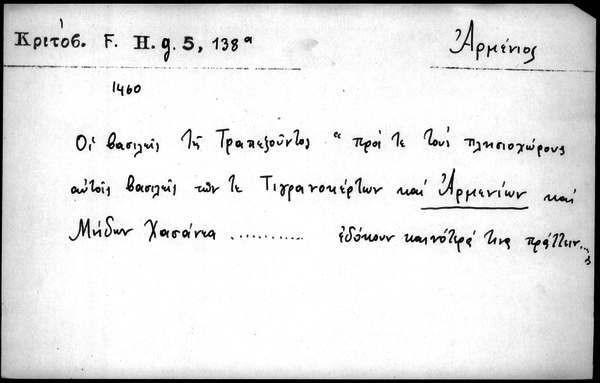 Κριτόβ. F. H. g. 5, 138ᵃ
Ἀρμένιος
1460
Οἱ βασιλεῖς τῆς Τραπεζοῦντος " πρός τε τοὺς πλησιοχώρους
αὐτοῖς βασιλεῖς τῶν τε Τιγρανοκέρτων καὶ Ἀρμενίων καὶ
Μήδων Χασάνεα ........... ἐδόκουν καινότερά τινα πράττειν..,